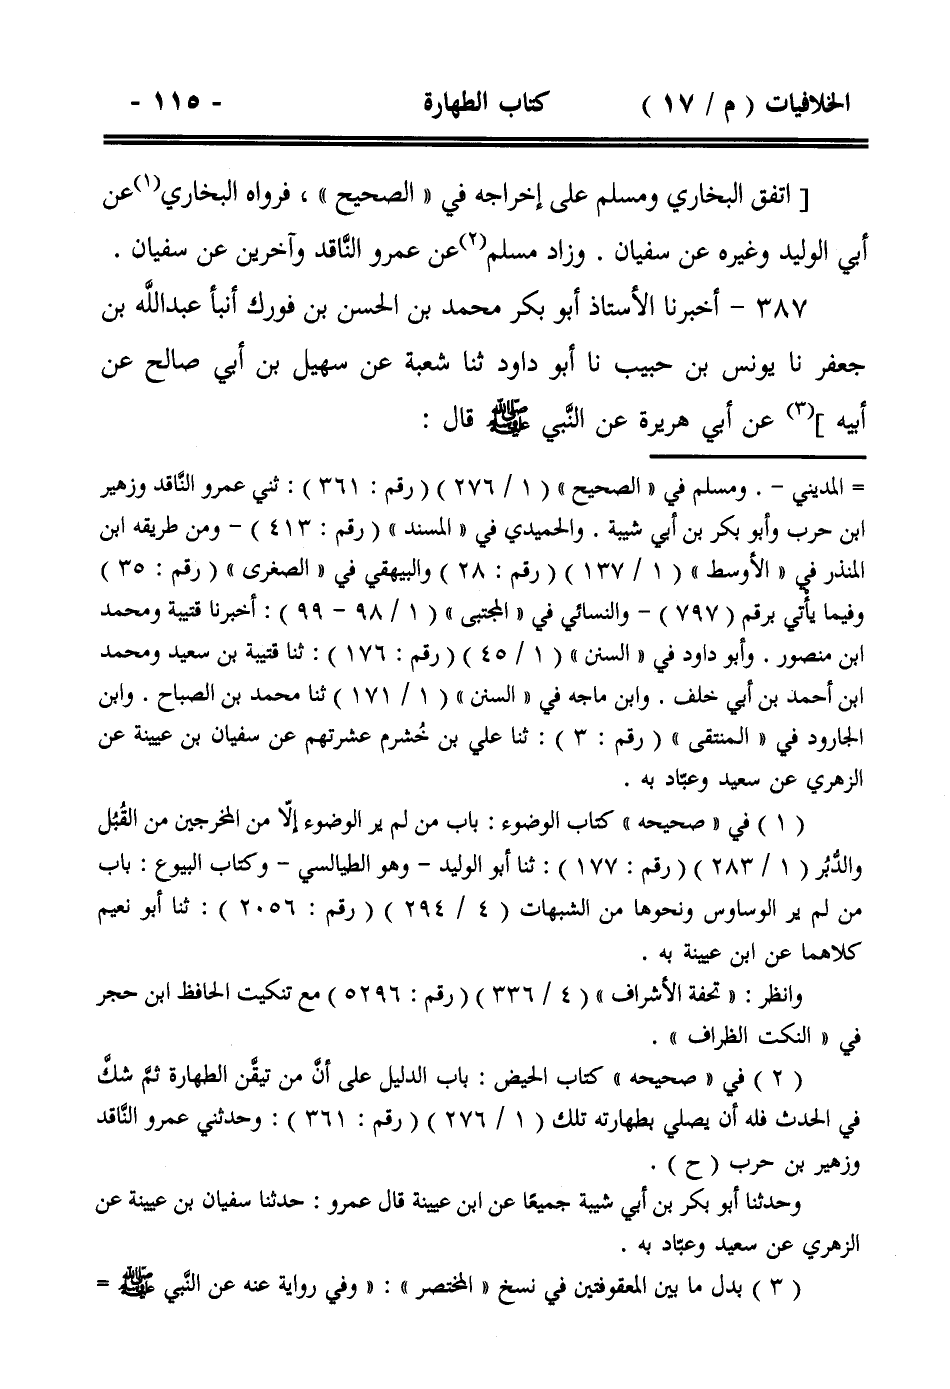 الخلافيات ( م / ١٧ ) كتاب الطهارة - ١١٥ -
[ اتفق البخاري ومسلم على إخراجه في « الصحيح » ، فرواه البخاري(١) عن
أبي الوليد وغيره عن سفيان . وزاد مسلم(٢) عن عمرو النَّاقد وآخرين عن سفيان .
٣٨٧ - أخبرنا الأستاذ أبو بكر محمد بن الحسن بن فورك أنبأ عبدالله بن
جعفر نا يونس بن حبيب نا أبو داود ثنا شعبة عن سهيل بن أبي صالح عن
أبيه ](٣) عن أبي هريرة عن النَّبي ﷺ قال :
= المديني - . ومسلم في « الصحيح » ( ١ / ٢٧٦ ) ( رقم : ٣٦١ ) : ثني عمرو النَّاقد وزهير
ابن حرب وأبو بكر بن أبي شيبة . والحميدي في « المسند » ( رقم : ٤١٣ ) - ومن طريقه ابن
المنذر في « الأوسط » ( ١ / ١٣٧ ) ( رقم : ٢٨ ) والبيهقي في « الصغرى » ( رقم : ٣٥ )
وفيما يأتي برقم ( ٧٩٧ ) - والنسائي في « المجتبى » ( ١ / ٩٨ - ٩٩ ) : أخبرنا قتيبة ومحمد
ابن منصور . وأبو داود في « السنن » ( ١ / ٤٥ ) ( رقم : ١٧٦ ) : ثنا قتيبة بن سعيد ومحمد
ابن أحمد بن أبي خلف . وابن ماجه في « السنن » ( ١ / ١٧١ ) ثنا محمد بن الصباح . وابن
الجارود في « المنتقى » ( رقم : ٣ ) : ثنا علي بن خُشرم عشرتهم عن سفيان بن عيينة عن
الزهري عن سعيد وعبّاد به .
( ١ ) في « صحيحه » كتاب الوضوء : باب من لم ير الوضوء إلّا من المخرجين من القُبُل
والدُّبُر ( ١ / ٢٨٣ ) ( رقم : ١٧٧ ) : ثنا أبو الوليد - وهو الطيالسي - وكتاب البيوع : باب
من لم ير الوساوس ونحوها من الشبهات ( ٤ / ٢٩٤ ) ( رقم : ٢٠٥٦ ) : ثنا أبو نعيم
كلاهما عن ابن عيينة به .
وانظر : « تحفة الأشراف » ( ٤ / ٣٣٦ ) ( رقم : ٥٢٩٦ ) مع تنكيت الحافظ ابن حجر
في « النكت الظراف » .
( ٢ ) في « صحيحه » كتاب الحيض : باب الدليل على أنَّ من تيقَّن الطهارة ثمَّ شكَّ
في الحدث فله أن يصلي بطهارته تلك ( ١ / ٢٧٦ ) ( رقم : ٣٦١ ) : وحدثني عمرو النَّاقد
وزهير بن حرب ( ح ) .
وحدثنا أبو بكر بن أبي شيبة جميعًا عن ابن عيينة قال عمرو : حدثنا سفيان بن عيينة عن
الزهري عن سعيد وعبّاد به .
( ٣ ) بدل ما بين المعقوفتين في نسخ « المختصر » : « وفي رواية عنه عن النَّبي ﷺ =